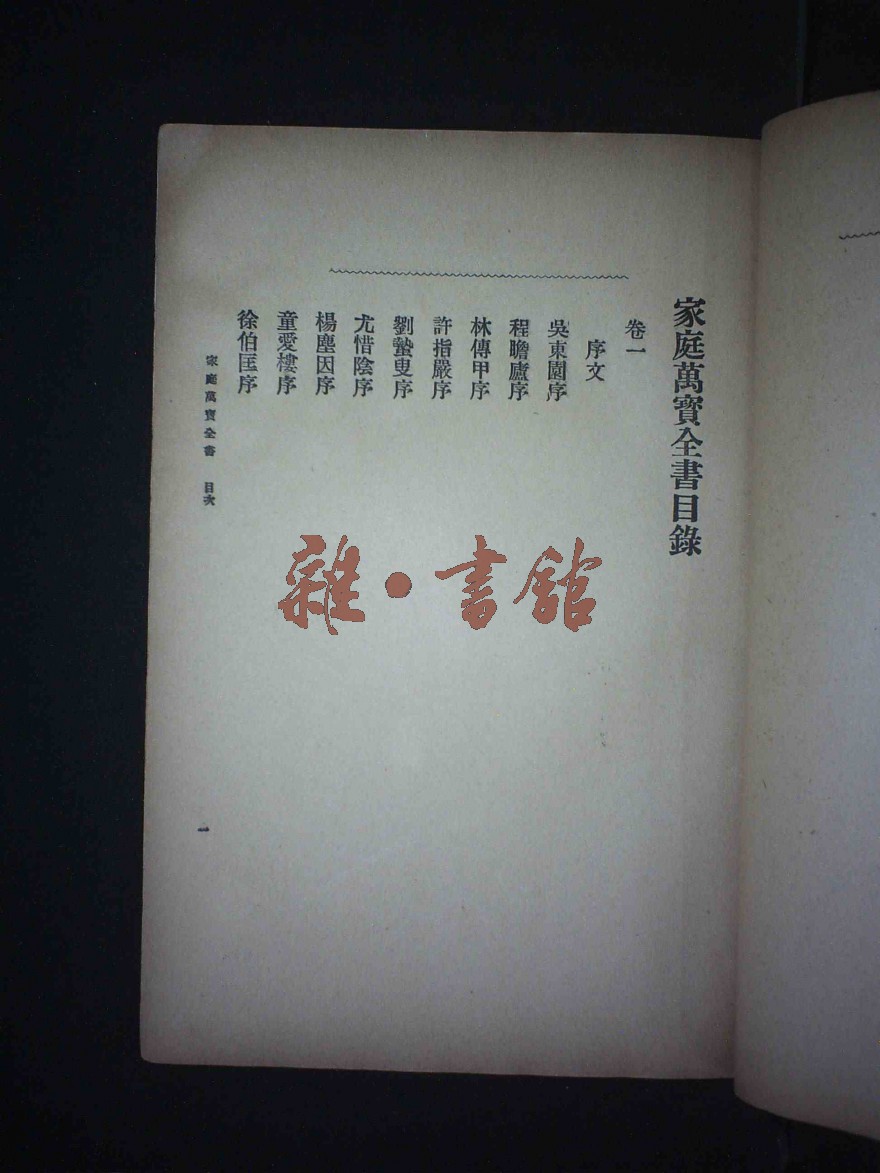 家庭萬寳全書目錄
卷一
序文
吳東園序
程瞻廬序
林傳甲序
許指嚴序
劉蟄叟序
尤惜陰序
楊塵因序
童愛樓序
徐伯匡序
家庭萬寳全書 目次
一
雜·書館